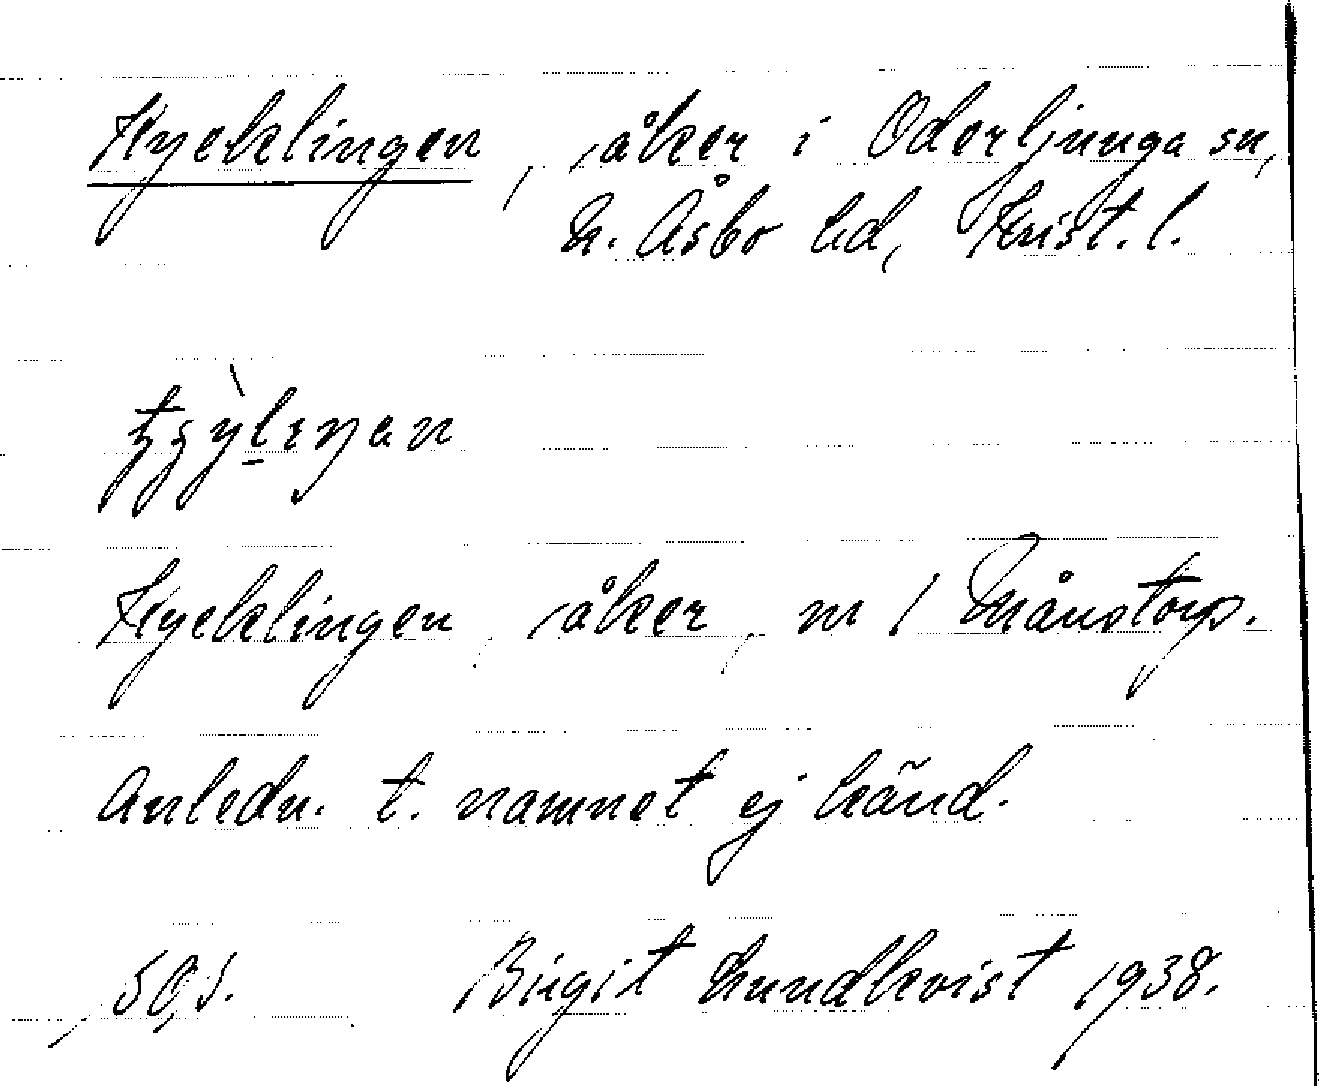 Kycklingen, åker i Oderljunga sn,
N. Åsbo hd, Krist. l.
Kycklingen, åker, nr 1 Månstorp.
Anledn. t. namnet ej känd.
Birgit Lundkvist 1938.